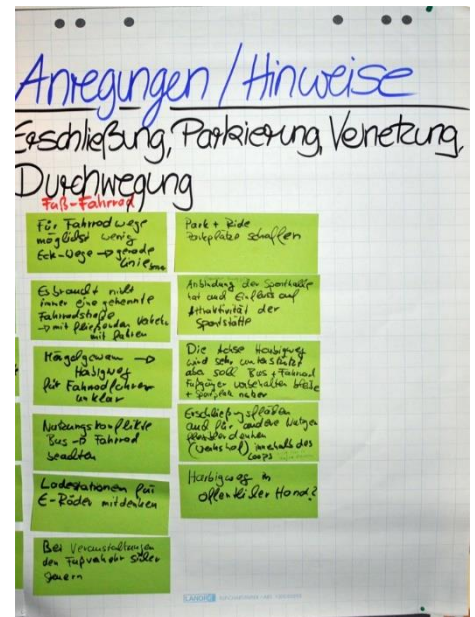 Anregungen / Hinweise
Erschließung, Parkierung, Vernetzung,
Durchwegung
Fuß-Fahrrad
Für Fahrradwege
möglichst wenig
Eck-Wege → gerade
Linie
Es braucht nicht
immer eine getrennte
Fahrradstraße
→ mit fließenden Verkehr
mit fahren
→
Harbigweg
für Fahrradfahrer
unklar
Nutzungskonflikte
Bus → Fahrrad
beachten
Ladestationen für
E-Räder mitdenken
Bei Veranstaltungen
den Fußverkehr sicher
steuern
Park + Ride
Parkplätze schaffen
Anbindung der Sporthalle
hat auch Einfluss auf
Attraktivität der
Sportstätte
Die Achse Harbigweg
wird sehr unterstützt
aber soll Bus + Fahrrad
Fußgänger vorbehalten
Erschließungsflächen
auch für andere
innerhalb des
Loops
Harbigweg in
öffentlicher Hand?
LANDRÉ